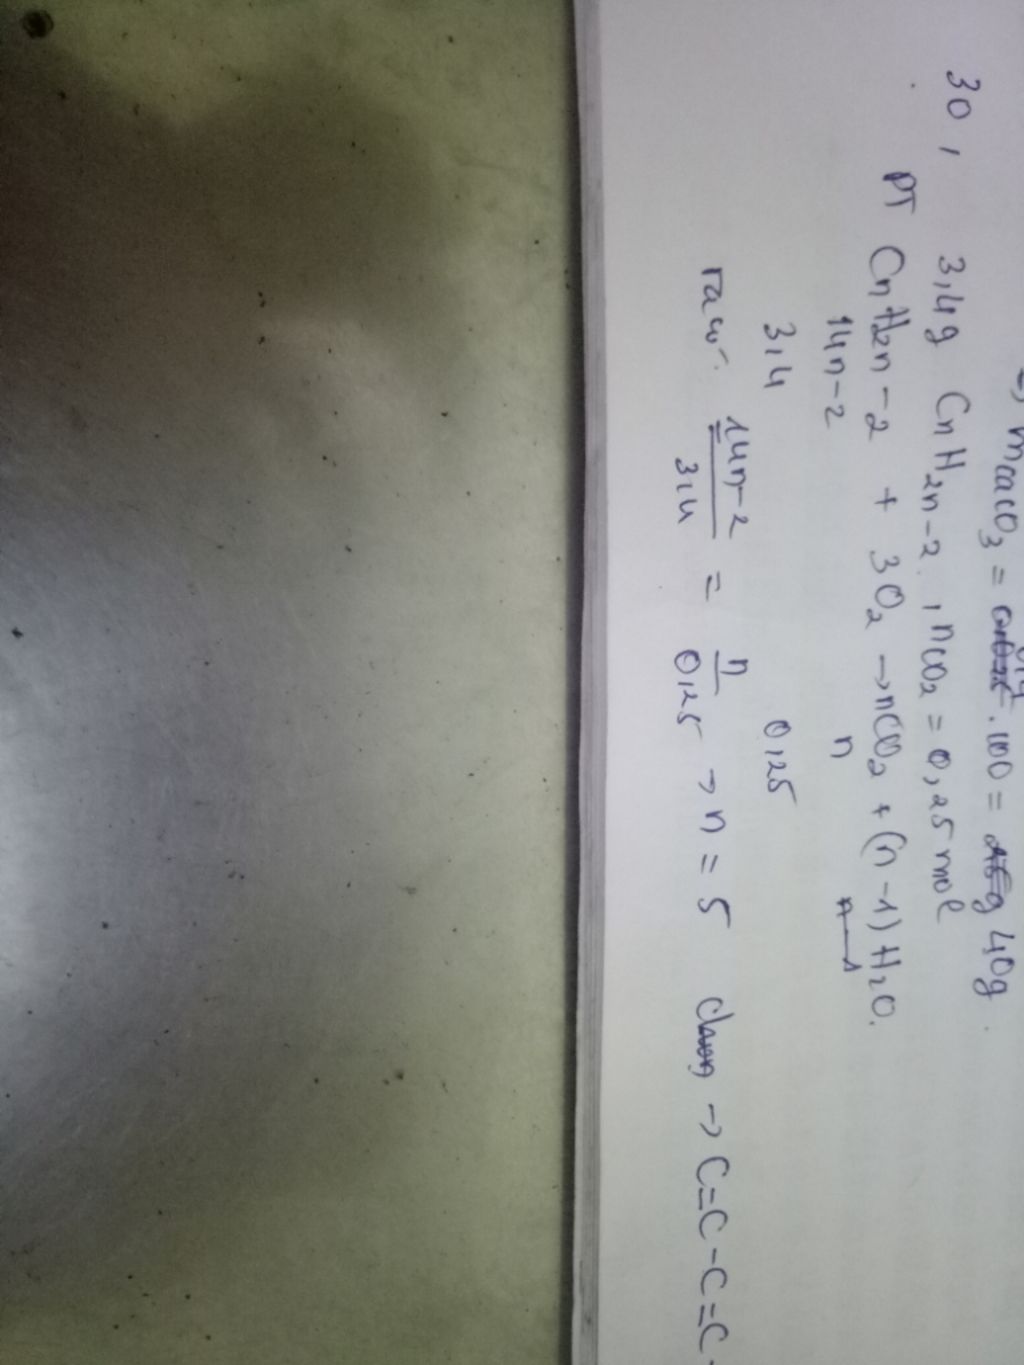 mCaCO3 = 0,4 . 100 = 40g.
30, 3,4g CnH2n-2, nCO2 = 0,25 mol
PT CnH2n-2 + 3O2 → nCO2 + (n-1) H2O.
14n-2 n
3,4 0,25
ta có 14n-2 / 3,4 = n / 0,25 → n = 5 → C=C-C=C-